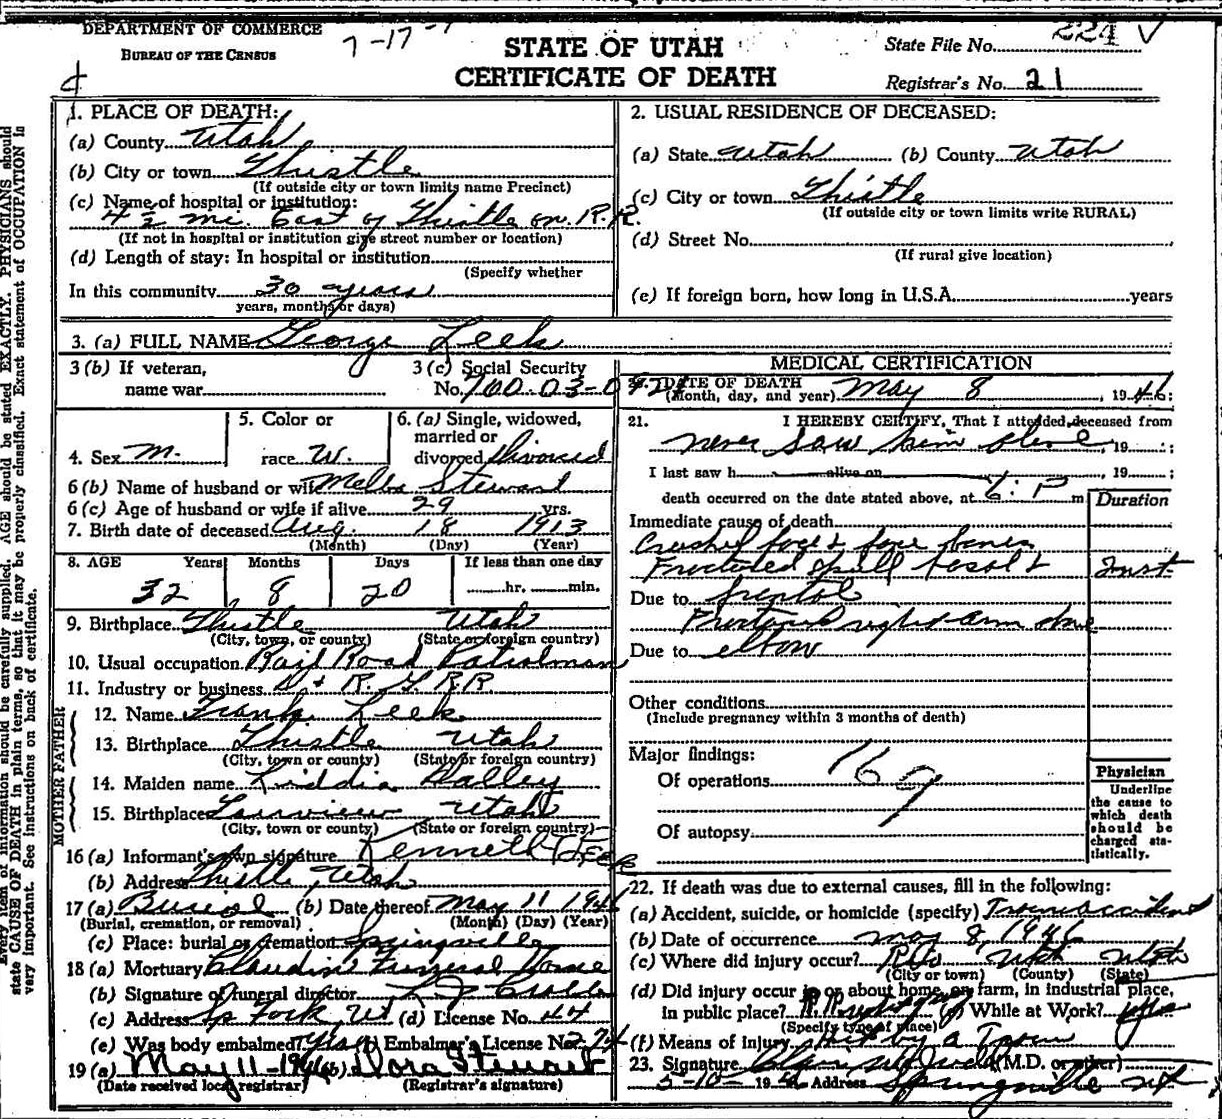 DEPARTMENT OF COMMERCE
BUREAU OF THE CENSUS
7-17-
STATE OF UTAH
CERTIFICATE OF DEATH
State File No. 224
Registrar's No. 21
1. PLACE OF DEATH:
(a) County Utah
(b) City or town Thistle
(If outside city or town limits name Precinct)
(c) Name of hospital or institution:
4 ½ mi. East of Thistle on R.R.
(If not in hospital or institution give street number or location)
(d) Length of stay: In hospital or institution
(Specify whether
In this community 30 years
years, months or days)
2. USUAL RESIDENCE OF DECEASED:
(a) State Utah (b) County Utah
(c) City or town Thistle
(If outside city or town limits write RURAL)
(d) Street No.
(If rural give location)
(e) If foreign born, how long in U.S.A. years
3. (a) FULL NAME George Leek
3 (b) If veteran,
name war
3 (c) Social Security
No. 700-03-0
4. Sex M.
5. Color or
race W.
6. (a) Single, widowed,
married or
divorced Divorced
6 (b) Name of husband or wife Melba Stewart
6 (c) Age of husband or wife if alive 29 yrs.
7. Birth date of deceased Aug. 18 1913
(Month) (Day) (Year)
8. AGE Years Months Days If less than one day
32 8 20 hr. min.
9. Birthplace Thistle Utah
(City, town, or county) (State or foreign country)
10. Usual occupation Rail Road Patrolman
11. Industry or business D + R. G. R.R.
FATHER
12. Name Frank Leek
13. Birthplace Thistle Utah
(City, town or county) (State or foreign country)
MOTHER
14. Maiden name Liddia Galley
15. Birthplace Fairview Utah
(City, town or county) (State or foreign country)
16 (a) Informant's own signature Kenneth Leek
(b) Address Thistle, Utah
17 (a) Burial (b) Date thereof May 11 1946
(Burial, cremation, or removal) (Month) (Day) (Year)
(c) Place: burial or cremation Springville
18 (a) Mortuary Claudin Funeral Home
(b) Signature of funeral director
(c) Address Sp Fork, Ut (d) License No. 44
(e) Was body embalmed? Yes (f) Embalmer's License No.
19 (a) May 11-1946 (b) Dora Stewart
(Date received local registrar) (Registrar's signature)
MEDICAL CERTIFICATION
20. DATE OF DEATH
(Month, day, and year) May 8, 1946
21. I HEREBY CERTIFY, That I attended deceased from
never saw him alive, 19 ;
I last saw h alive on , 19 ;
death occurred on the date stated above, at 6: P m
Duration
Immediate cause of death
Crushed face & face bones
Fractured skull basal & Inst.
Due to frontal
Fractured right arm above
Due to elbow
Other conditions
(Include pregnancy within 3 months of death)
Major findings:
Of operations
169
Of autopsy
Physician
Underline
the cause to
which death
should be
charged sta-
tistically.
22. If death was due to external causes, fill in the following:
(a) Accident, suicide, or homicide (specify) Train accident
(b) Date of occurrence May 8, 1946
(c) Where did injury occur? Utah Utah
(City or town) (County) (State)
(d) Did injury occur in or about home, on farm, in industrial place,
in public place? (e) While at Work? yes
(Specify type of place)
(f) Means of injury Hit by a Train
23. Signature (M.D. or other)
5-10- 1946 Address Springville Ut
Every item of information should be carefully supplied. AGE should be stated EXACTLY. PHYSICIANS should
state CAUSE OF DEATH in plain terms, so that it may be properly classified. Exact statement of OCCUPATION is
very important. See instructions on back of certificate.